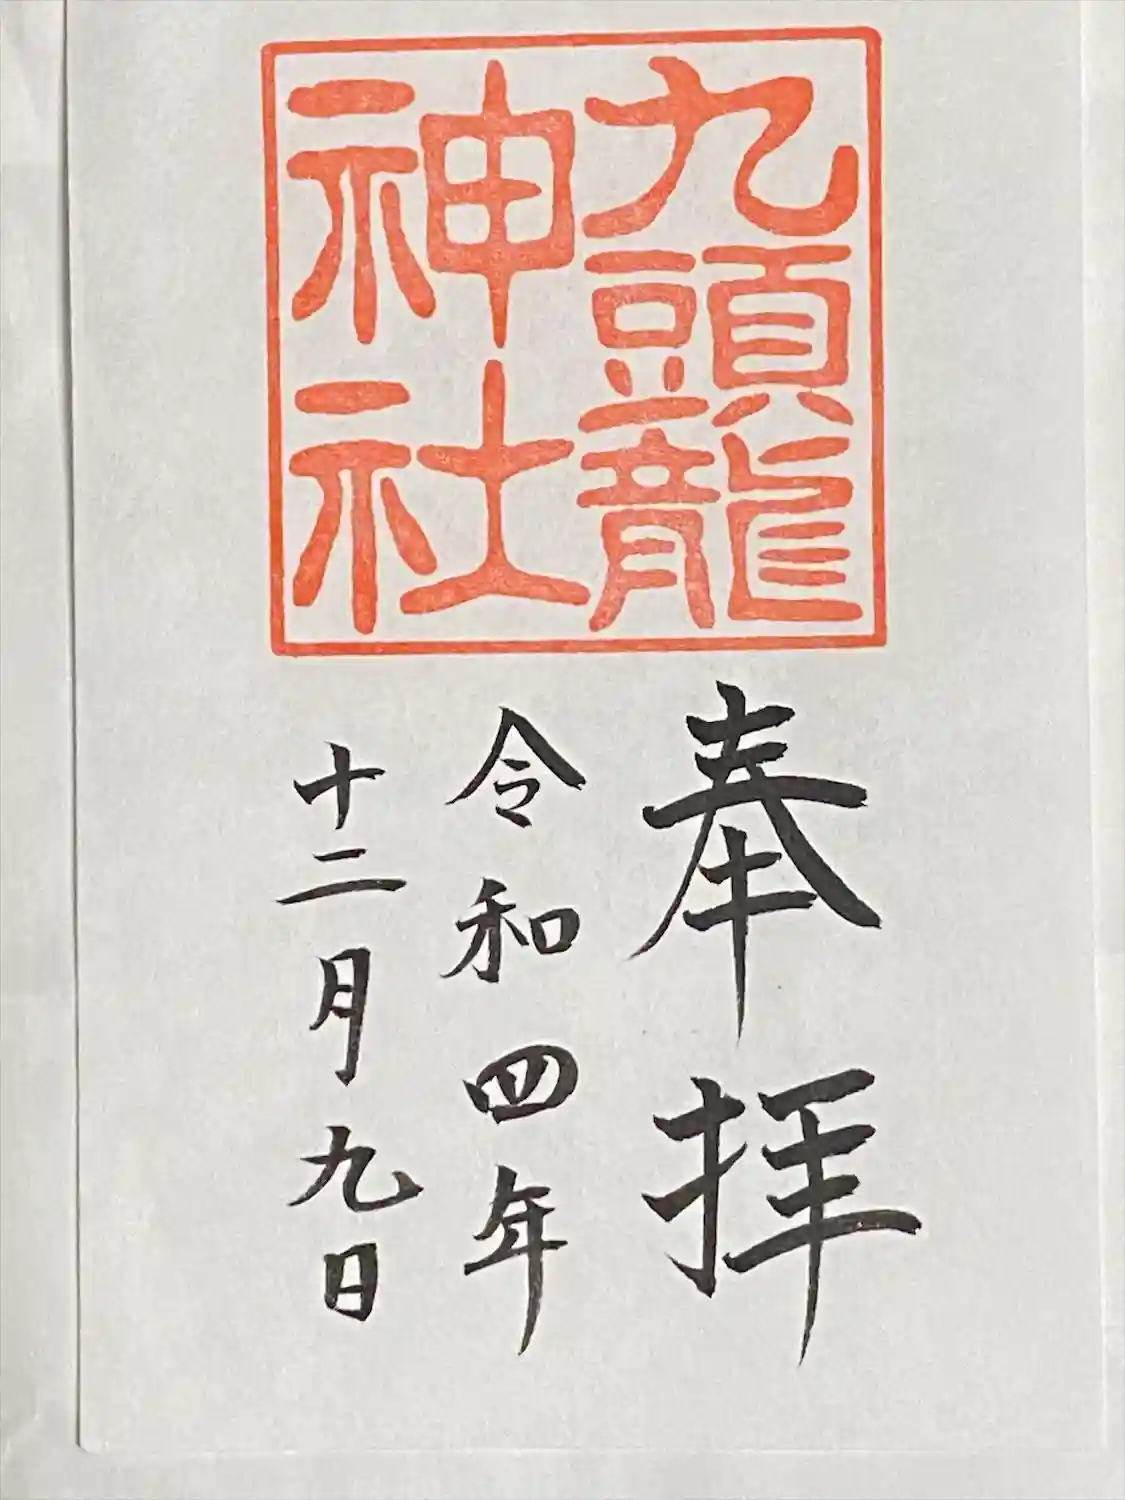 九頭龍
神社
奉拝
令和四年
十二月九日